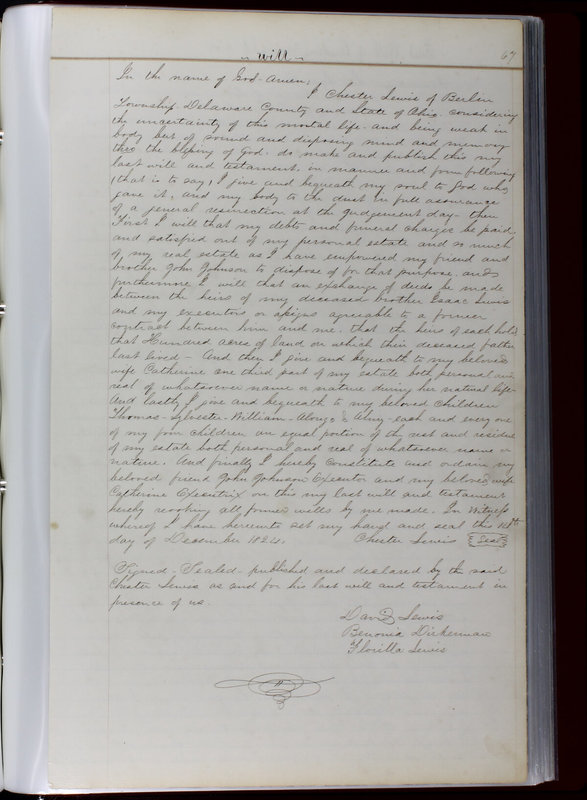 ~ will ~ 67
In the name of God. Amen;
I Chester Lewis of Berlin
Township. Delaware County and State of Ohio. considering
the uncertainty of this mortal life. and being weak in
body but of sound and disposing mind and memory
thro the blessing of God. do make and publish this my
last will and testament, in manner and form following
(that is to say) I give and bequeath my soul to God who
gave it, and my body to the dust in full assurance
of a general resurrection at the judgement day - then
First I will that my debts and funeral charges be paid,
and satisfied out of my personal estate and so much
of my real estate as I have empowered my friend and
brother John Johnson to dispose of for that purpose. and
furthermore I will that an exchange of deeds be made
between the heirs of my deceased brother Isaac Lewis
and my executors or assigns agreeable to a former
contract between him and me. that the heirs of each hold
that Hundred acres of land on which their deceased father
last lived - And then I give and bequeath to my beloved
wife Catherine one third part of my estate both personal and
real of whatsoever name or nature during her natural life-
And lastly I give and bequeath to my beloved children
Thomas - Sylvester - William - Alonzo & - each and every one
of my children an equal portion of the rest and residue
of my estate both personal and real of whatsoever name or
nature. And finally I hereby constitute and ordain my
beloved friend John Johnson Executor and my beloved wife
Catherine Executrix on this my last will and testament
hereby revoking all former wills by me made. In Witness
whereof I have hereunto set my hand and seal this
day of December 1824. Chester Lewis (Seal)
Signed - Sealed - published and declared by the said
Chester Lewis as and for his last will and testament in
presence of us.
David Lewis
Benonia Dickerman
Floritta Lewis